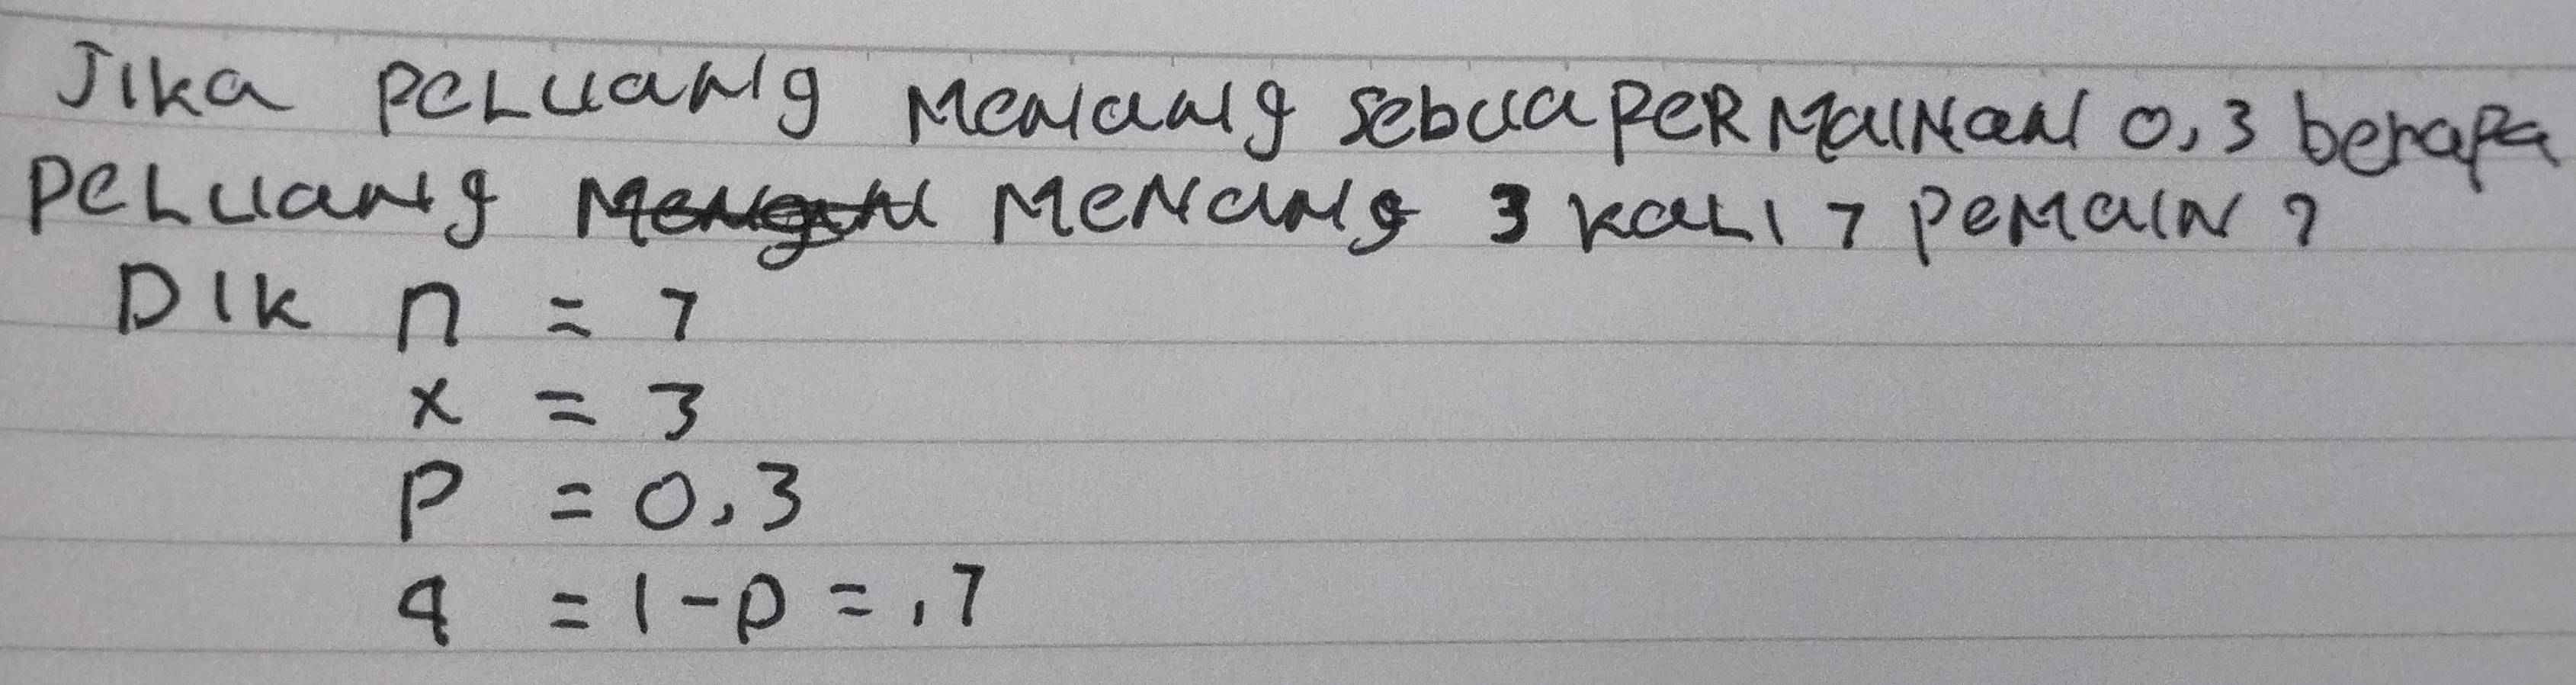 Jika PeLuang Menang sebua PeRMaiNan 0,3 berapa
PeLuang MeNang 3 kaLi 7 PeMaiN ?
Dik n = 7
x = 3
P = 0,3
q = 1-p = ,7